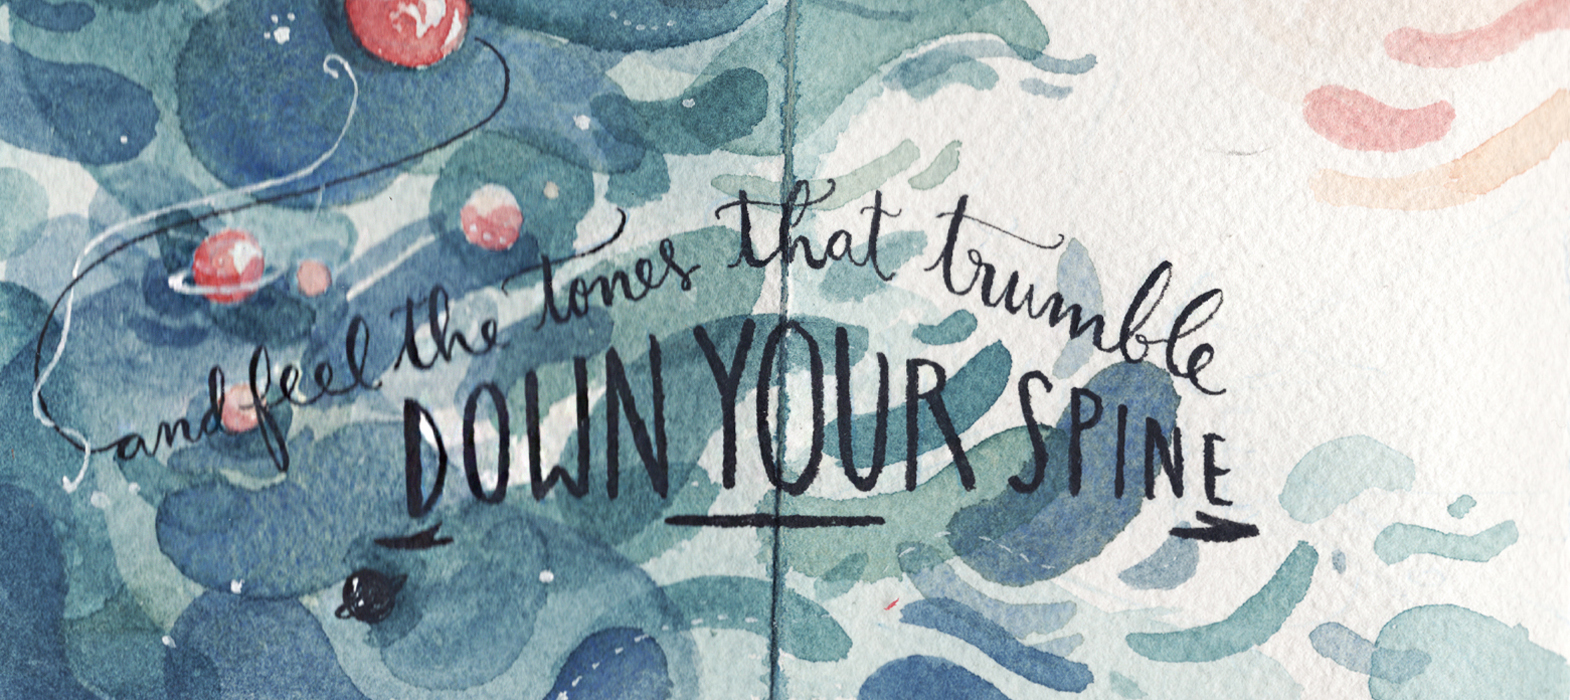 and feel the tones that trumble
DOWN YOUR SPINE